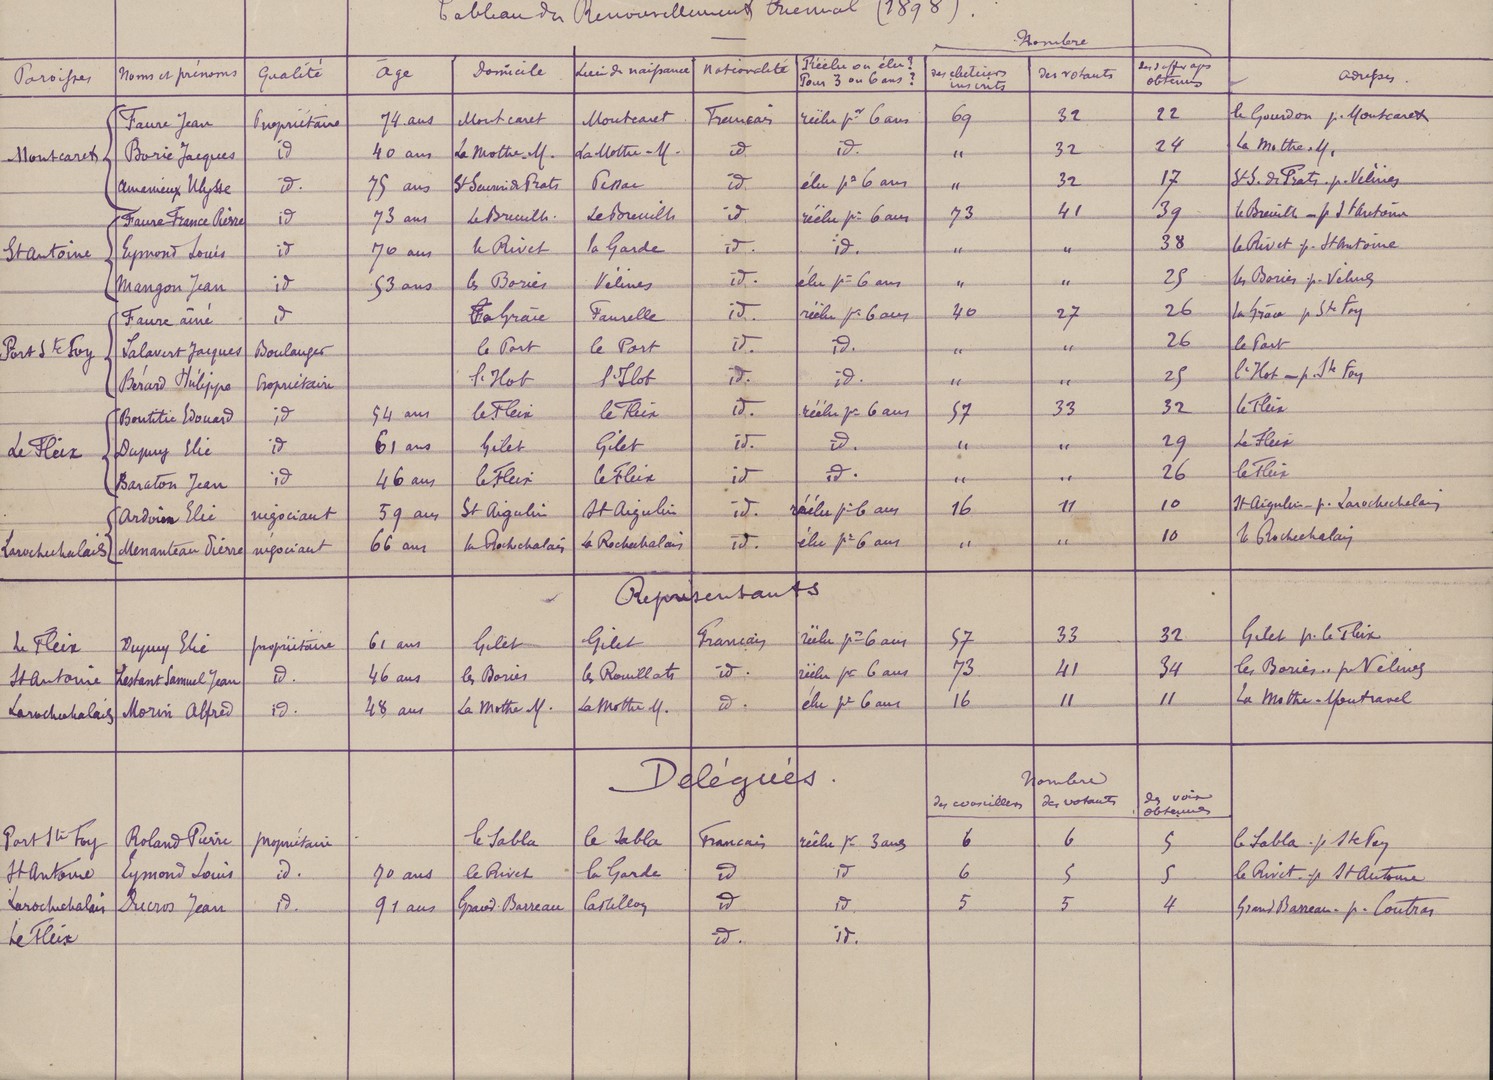 Tableau du Renouvellement triennal (1898).
Nombre
Paroisses Noms et prénoms Qualité Age Domicile Lieu de naissance Nationalité Réélu ou élu? Pour 3 ou 6 ans? des électeurs inscrits des votants des suffrages obtenus adresses.
Faure Jean Propriétaire 74 ans Montcaret Montcaret Francais réélu pr 6 ans 69 32 22 le Gourdon p. Montcaret
Montcaret Borie Jacques id 40 ans La Mothe-M. La Mothe-M. id id. " 32 24 La Mothe-M.
Amenieux Ulysse id. 75 ans St Seurin de Prats Pessac id élu pr 6 ans " 32 17 St S. de Prats p. Vélines
Faure France Pierre id 73 ans Le Breuilh. Le Breuilh id réélu pr 6 ans 73 41 39 le Breuilh - p St Antoine
St Antoine Eymond Louis id 70 ans le Rivet la Garde id. id. " " 38 le Rivet p. St Antoine
Mangon Jean id 53 ans les Bories Vélines id. élu pr 6 ans " " 25 les Bories p. Vélines
Faure aîné id La Grâce Faurelle id. réélu pr 6 ans 40 27 26 la Grâce p Ste Foy
Port Ste Foy Lalavert Jacques Boulanger le Port le Port id. id. " " 26 le Port
Bérard Philippe Propriétaire l'Ilot l'Ilot id. id. " " 25 l'Ilot - p. Ste Foy
Boutitie Edouard id 54 ans le Fleix le Fleix id. réélu pr 6 ans 57 33 32 le Fleix
Le Fleix Dupuy Elie id 61 ans Gilet Gilet id. id. " " 29 Le Fleix
Baraton Jean id 46 ans le Fleix le Fleix id id. " " 26 le Fleix
Ardouin Elie négociant 59 ans St Aigulin St Aigulin id. réélu pr 6 ans 16 11 10 St Aigulin - p. Larochechalais
Larochechalais Menanteau Pierre négociant 66 ans la Rochechalais La Rochechalais id. élu pr 6 ans " " 10 la Rochechalais
Représentants
Le Fleix Dupuy Elie propriétaire 61 ans Gilet Gilet Francais réélu pr 6 ans 57 33 32 Gilet p. le Fleix
St Antoine Lestant Samuel Jean id. 46 ans les Bories les Rouillats id. réélu pr 6 ans 73 41 34 les Bories .. p Vélines
Larochechalais Morin Alfred id. 48 ans La Mothe M. La Mothe M. id. élu pr 6 ans 16 11 11 La Mothe-Montravel
Délégués.
Nombre
des conseillers des votants des voix obtenues
Port Ste Foy Roland Pierre propriétaire le Sabla le Sabla Francais réélu pr 3 ans 6 6 5 le Sabla p Ste Foy
St Antoine Eymond Louis id. 70 ans le Rivet la Garde id id 6 5 5 le Rivet p St Antoine
Larochechalais Ducros Jean id. 91 ans Grand-Barreau Castillon id id 5 5 4 Grand Barreau - p. Coutras
Le Fleix id. id.